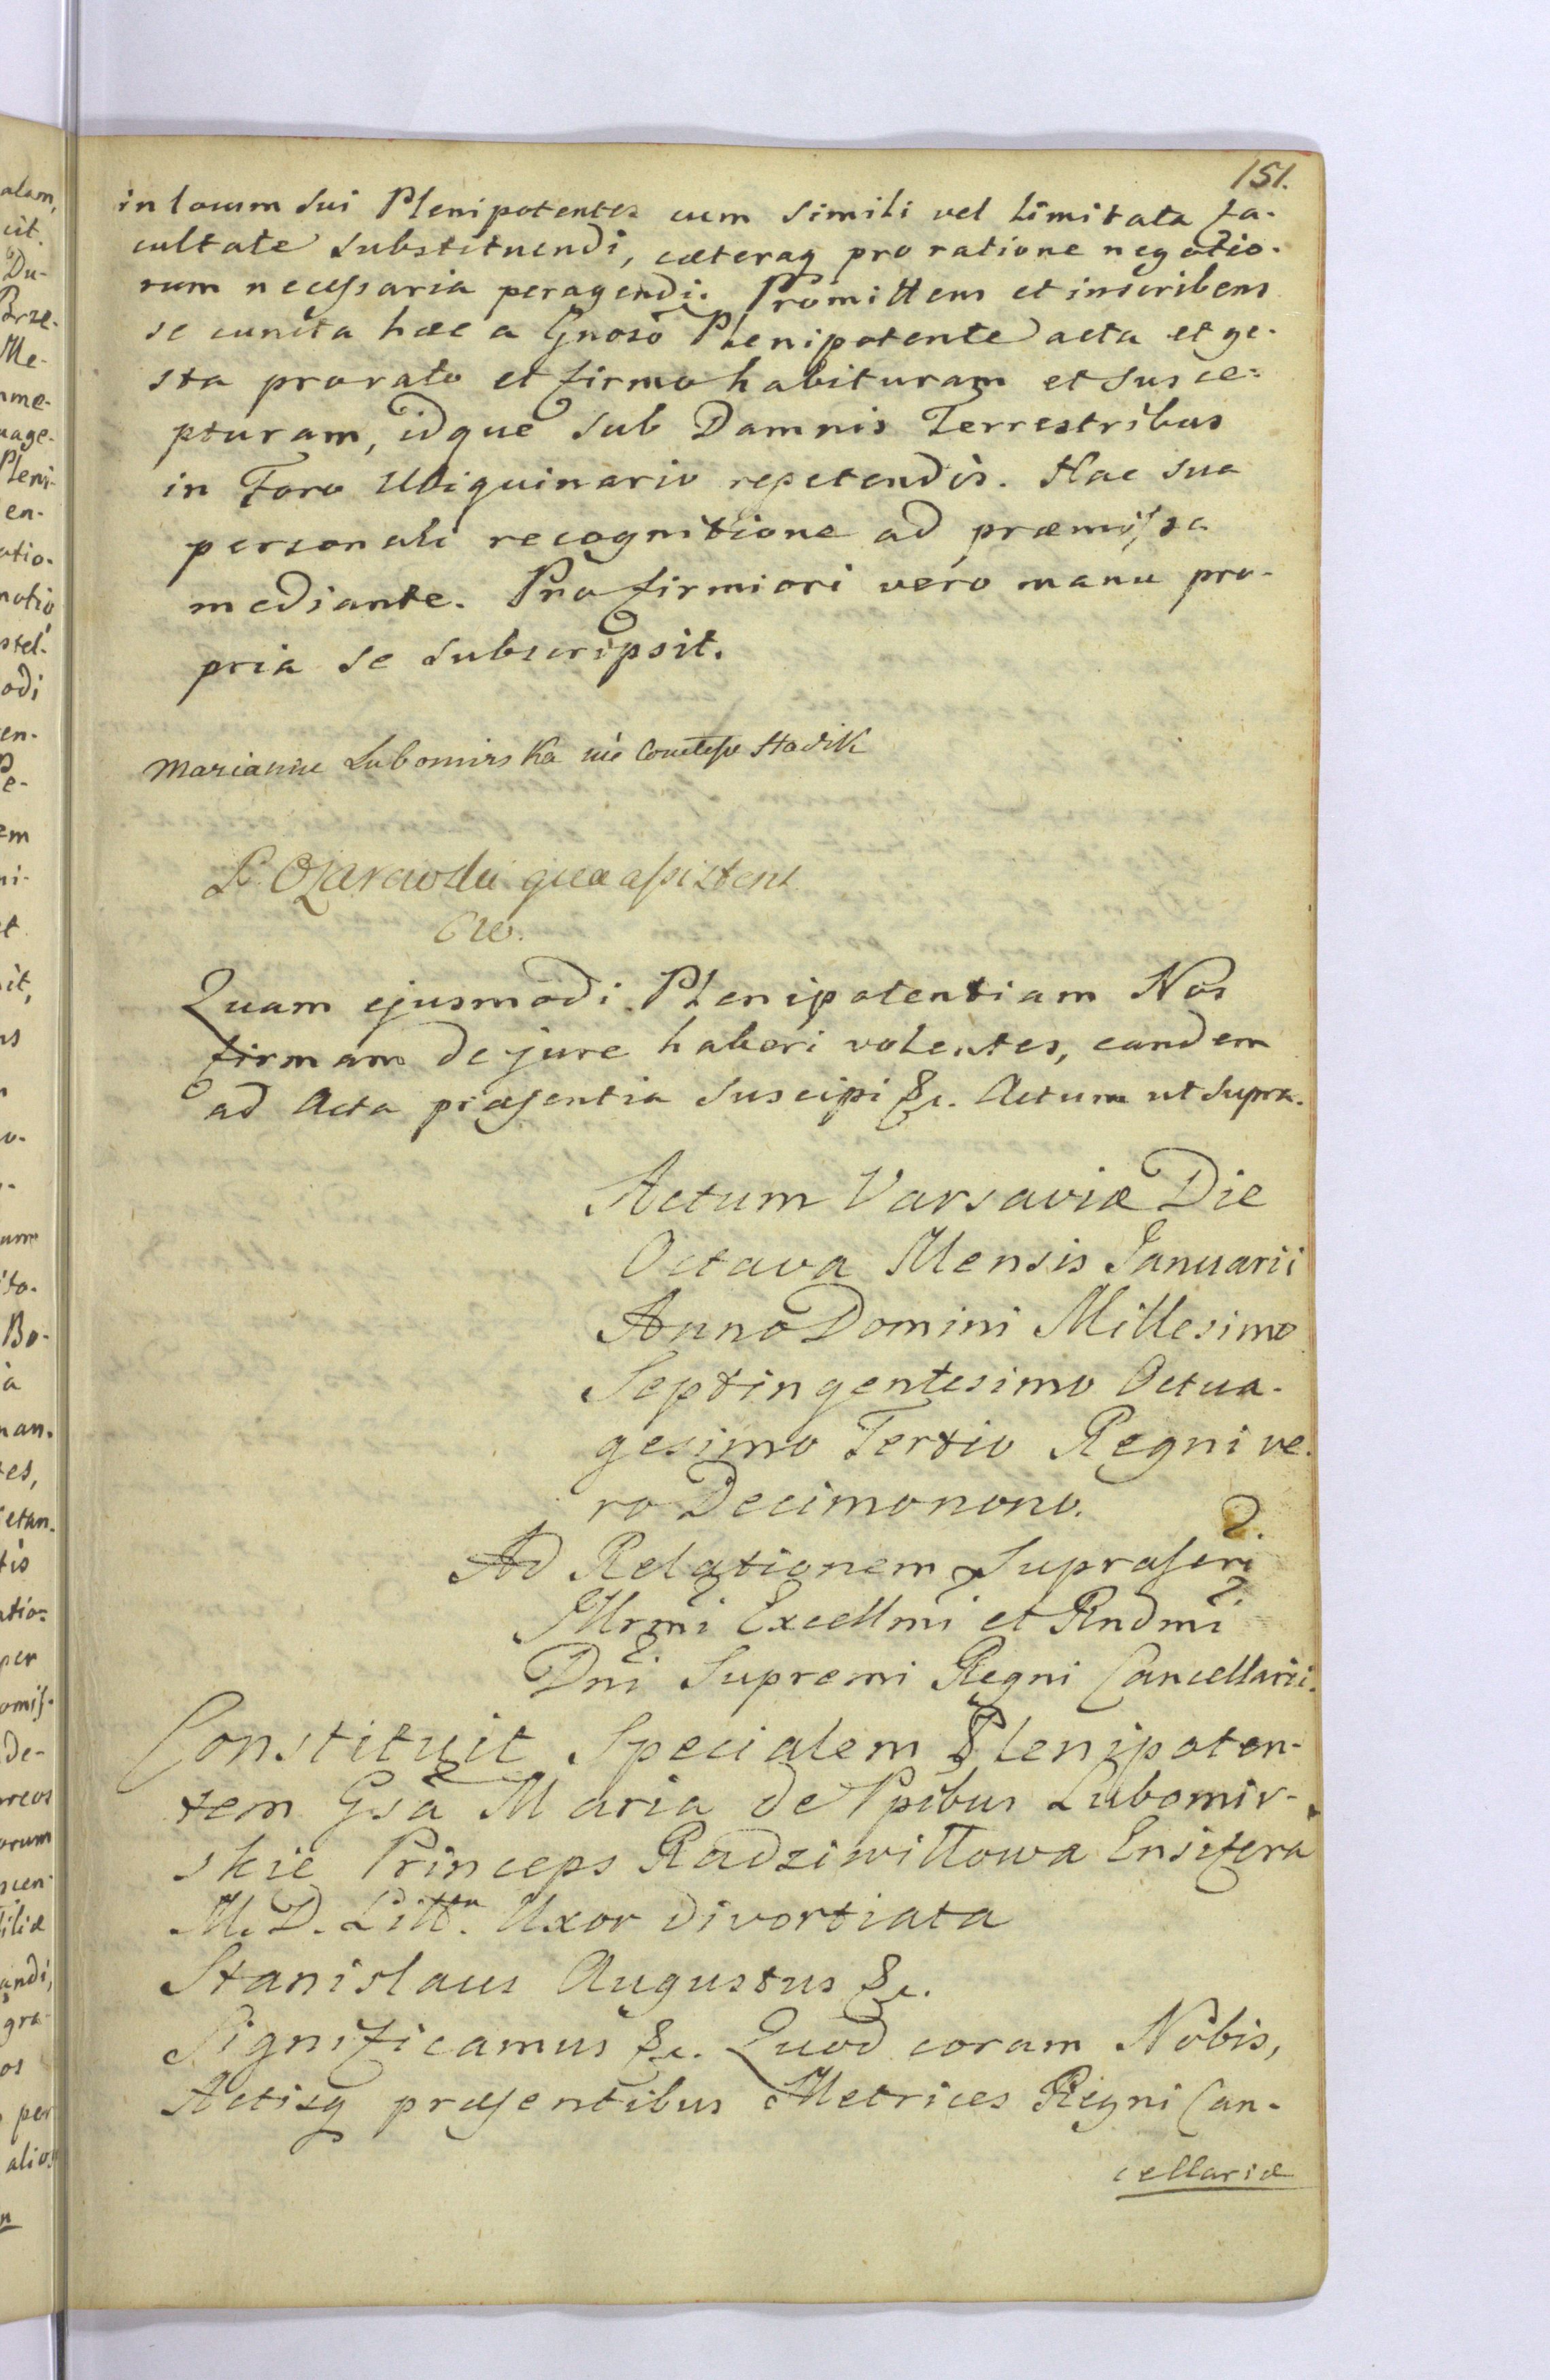 151.
in locum sui Plenipotentes cum simili vel limitata fa-
cultate substituendi, cæteraq pro ratione negotio-
rum necessaria peragendi. Promittens et inscribens
se cuncta hæc a Gnoso Plenipotente acta et ge-
sta pro rato et firmo habituram et susce-
pturam, idque sub Damnis Terrestribus
in Foro Ubiquinario repetendis. Hac sua
personali recognitione ad præmissa
mediante. Pro firmiori vero manu pro-
pria se subscripsit.
Marianne Lubomirska née Comtesse Hadik
Ożarowski qua assistens
Quam ejusmodi Plenipotentiam Nos
firmam de jure haberi volentes, eandem
ad Acta præsentia suscipi &c. Actum ut supra.
Actum Varsaviæ Die
Octava Mensis Januarii
Anno Domini Millesimo
Septingentesimo Octua-
gesimo Tertio Regni ve-
ro Decimonono.
Ad Relationem Suprascri
Illrmi Excellmi et Rndmi
Dni Supremi Regni Cancellarii.
Constituit Specialem Plenipoten-
tem Gsa Maria de Ppibus Lubomir-
skie Princeps Radziwiłłowa Ensifera
M. D. Litt. Uxor divortiata
Stanislaus Augustus &c.
Significamus &c. Quod coram Nobis,
Actisq præsentibus Metrices Regni Can-
cellariæ